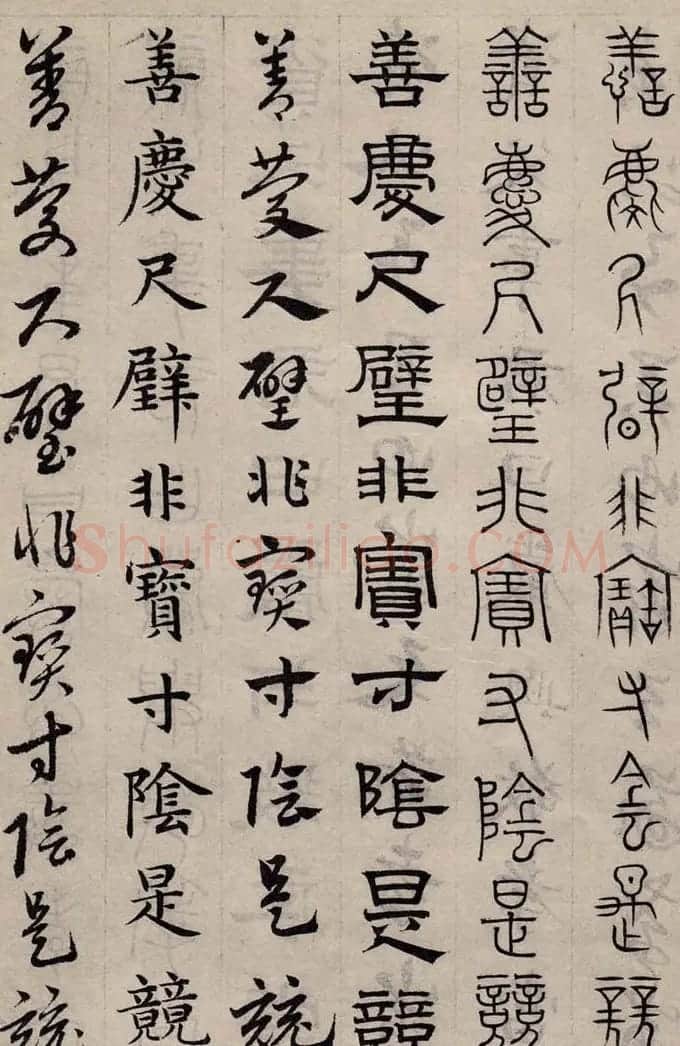 善慶尺璧非寶寸陰是競
善慶尺璧非寶寸陰是競
善慶尺璧非寶寸陰是競
善慶尺璧非寶寸陰是競
善慶尺璧非寶寸陰是競
善慶尺璧非寶寸陰是競
Shufaziliao.COM